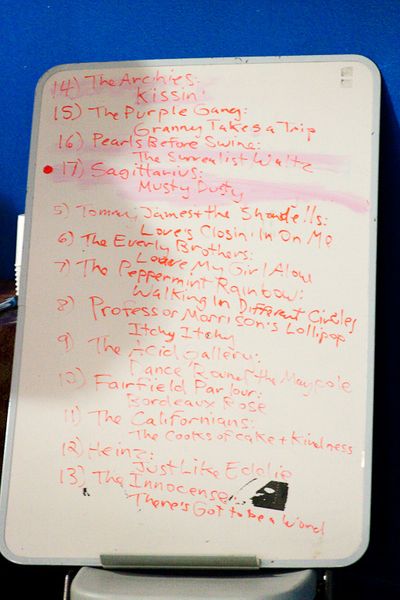 14) The Archies:
Kissin'
15) The Purple Gang:
Granny Takes a Trip
16) Pearls Before Swine:
The Surrealist Waltz
17) Sagittarius:
Musty Dusty
5) Tommy James + the Shondells:
Love's Closin' In On Me
6) The Everly Brothers:
Leave My Girl Alone
7) The Peppermint Rainbow:
Walking In Different Circles
8) Professor Morrison's Lollipop
Itchy Itchy
9) The Acid Gallery:
Dance 'Round the Maypole
10) Fairfield Parlour:
Bordeaux Rose
11) The Californians:
The Cooks of cake + Kindness
12) Heinz:
Just Like Eddie
13) The Innocense
There's Got to be a Word